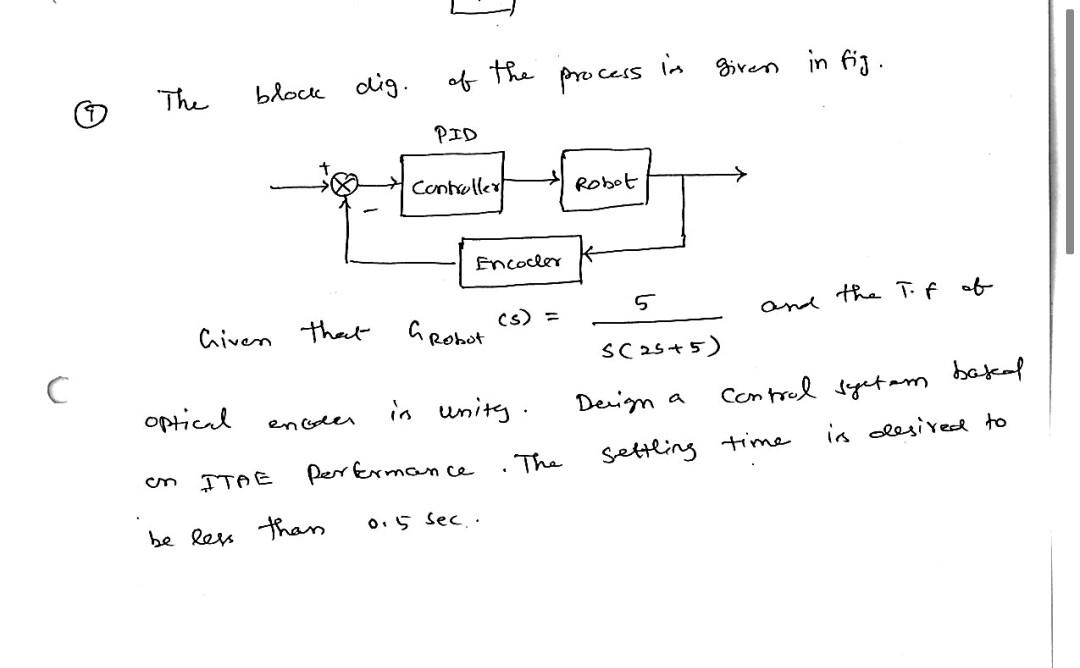 9 The block dig. of the process is given in fig.
PID
+
Controller
Robot
-
Encoder
Given that G Robot (s) = 5 / S(2S+5) and the T.f of
optical encoder is unity. Design a Control system based
on ITAE Performance. The settling time is desired to
be less than 0.5 sec.